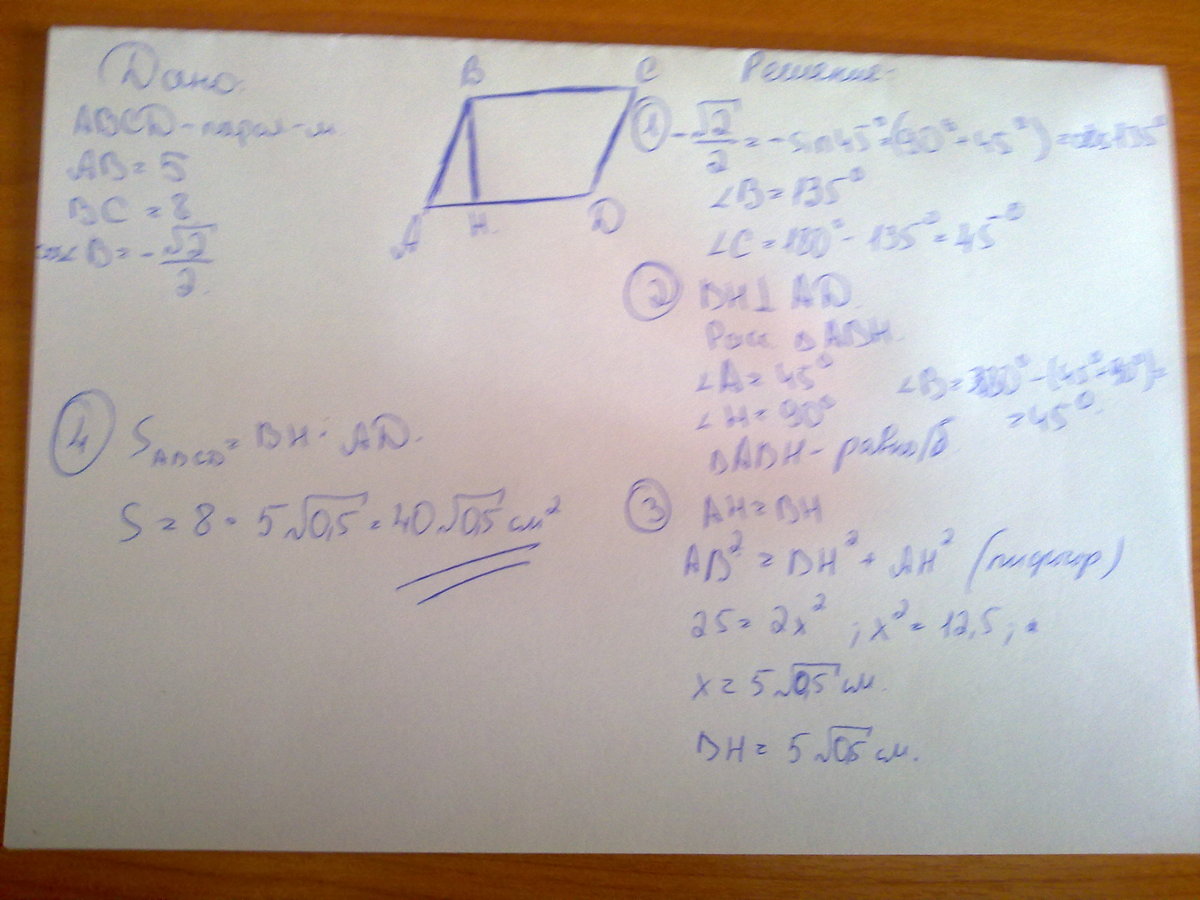 Дано:
ABCD - парал-м
AB = 5
BC = 8
cos∠B = -√2/2
B C
A H D
Решение:
① -√2/2 = -sin45° = (90°-45°) = cos135°
∠B = 135°
∠C = 180° - 135° = 45°
② BH ⊥ AD
Расс. △ABH.
∠A = 45° ∠B = 180° - (45° - 90°) =
∠H = 90° = 45°.
△ABH - равноб
③ AH = BH
AB² = BH² + AH² (пифагор)
25 = 2x² ; x² = 12,5 ;
x = 5√0,5 см.
BH = 5√0,5 см.
④ S ABCD = BH · AD.
S = 8 · 5√0,5 = 40√0,5 см²